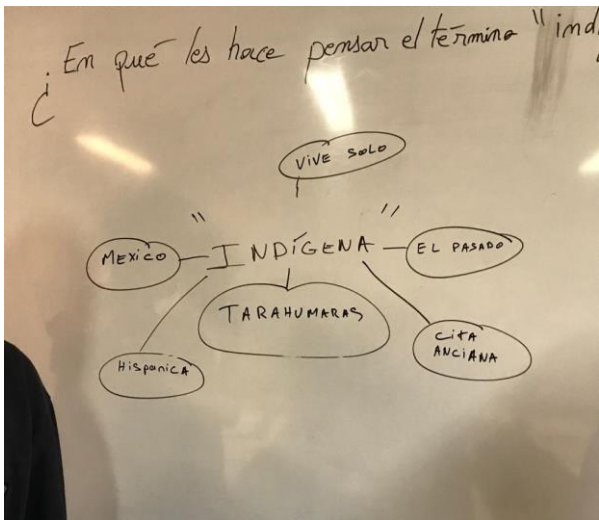 ¿En qué les hace pensar el término "ind
VIVE SOLO
"INDÍGENA"
MEXICO
EL PASADO
TARAHUMARAS
CITA
ANCIANA
HispanicA